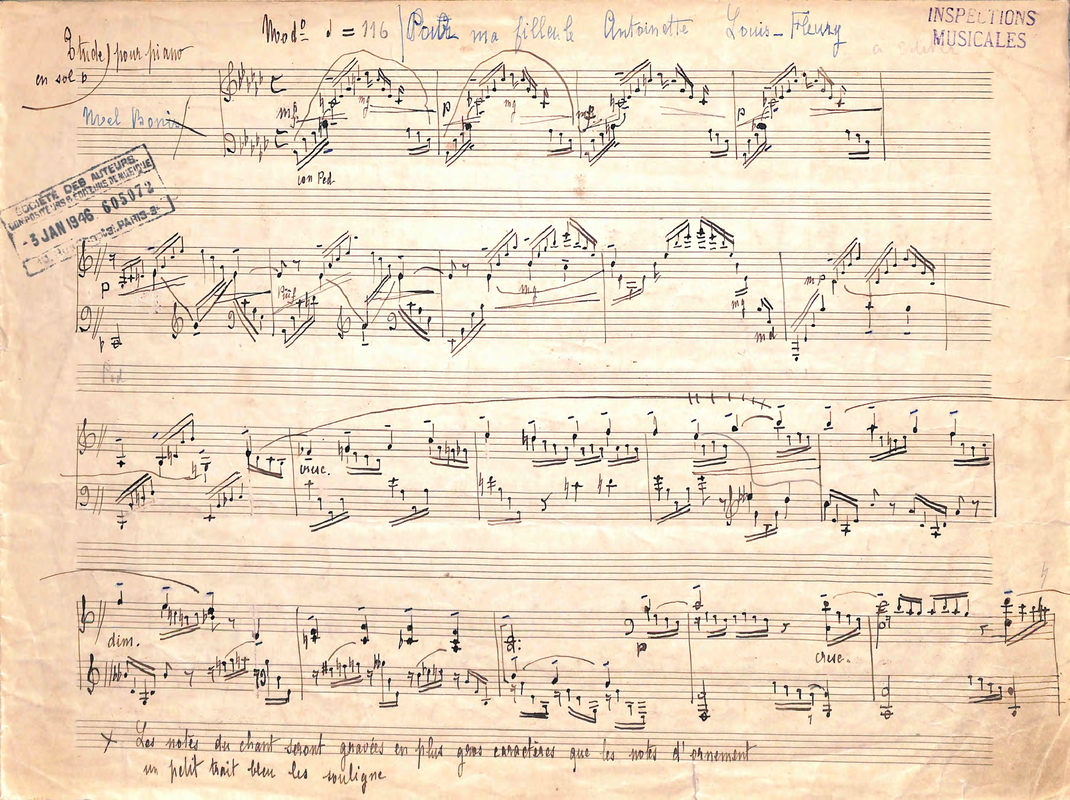 Modº ♩ = 116 Pour ma filleule Antoinette Louis-Fleury
INSPECTIONS
MUSICALES
Etude pour piano
en sol b
Mel Bonis
mf
mg
p
mg
mp
p
con Ped.
SOCIÉTÉ DES AUTEURS
COMPOSITEURS & EDITEURS DE MUSIQUE
-3 JAN 1946 605072
PARIS-9e
p
mg
mg
md
mp
p
Ped
cresc.
dim.
p
cresc.
x Les notes du chant seront gravées en plus gros caractères que les notes d'ornement
un petit trait bleu les souligne